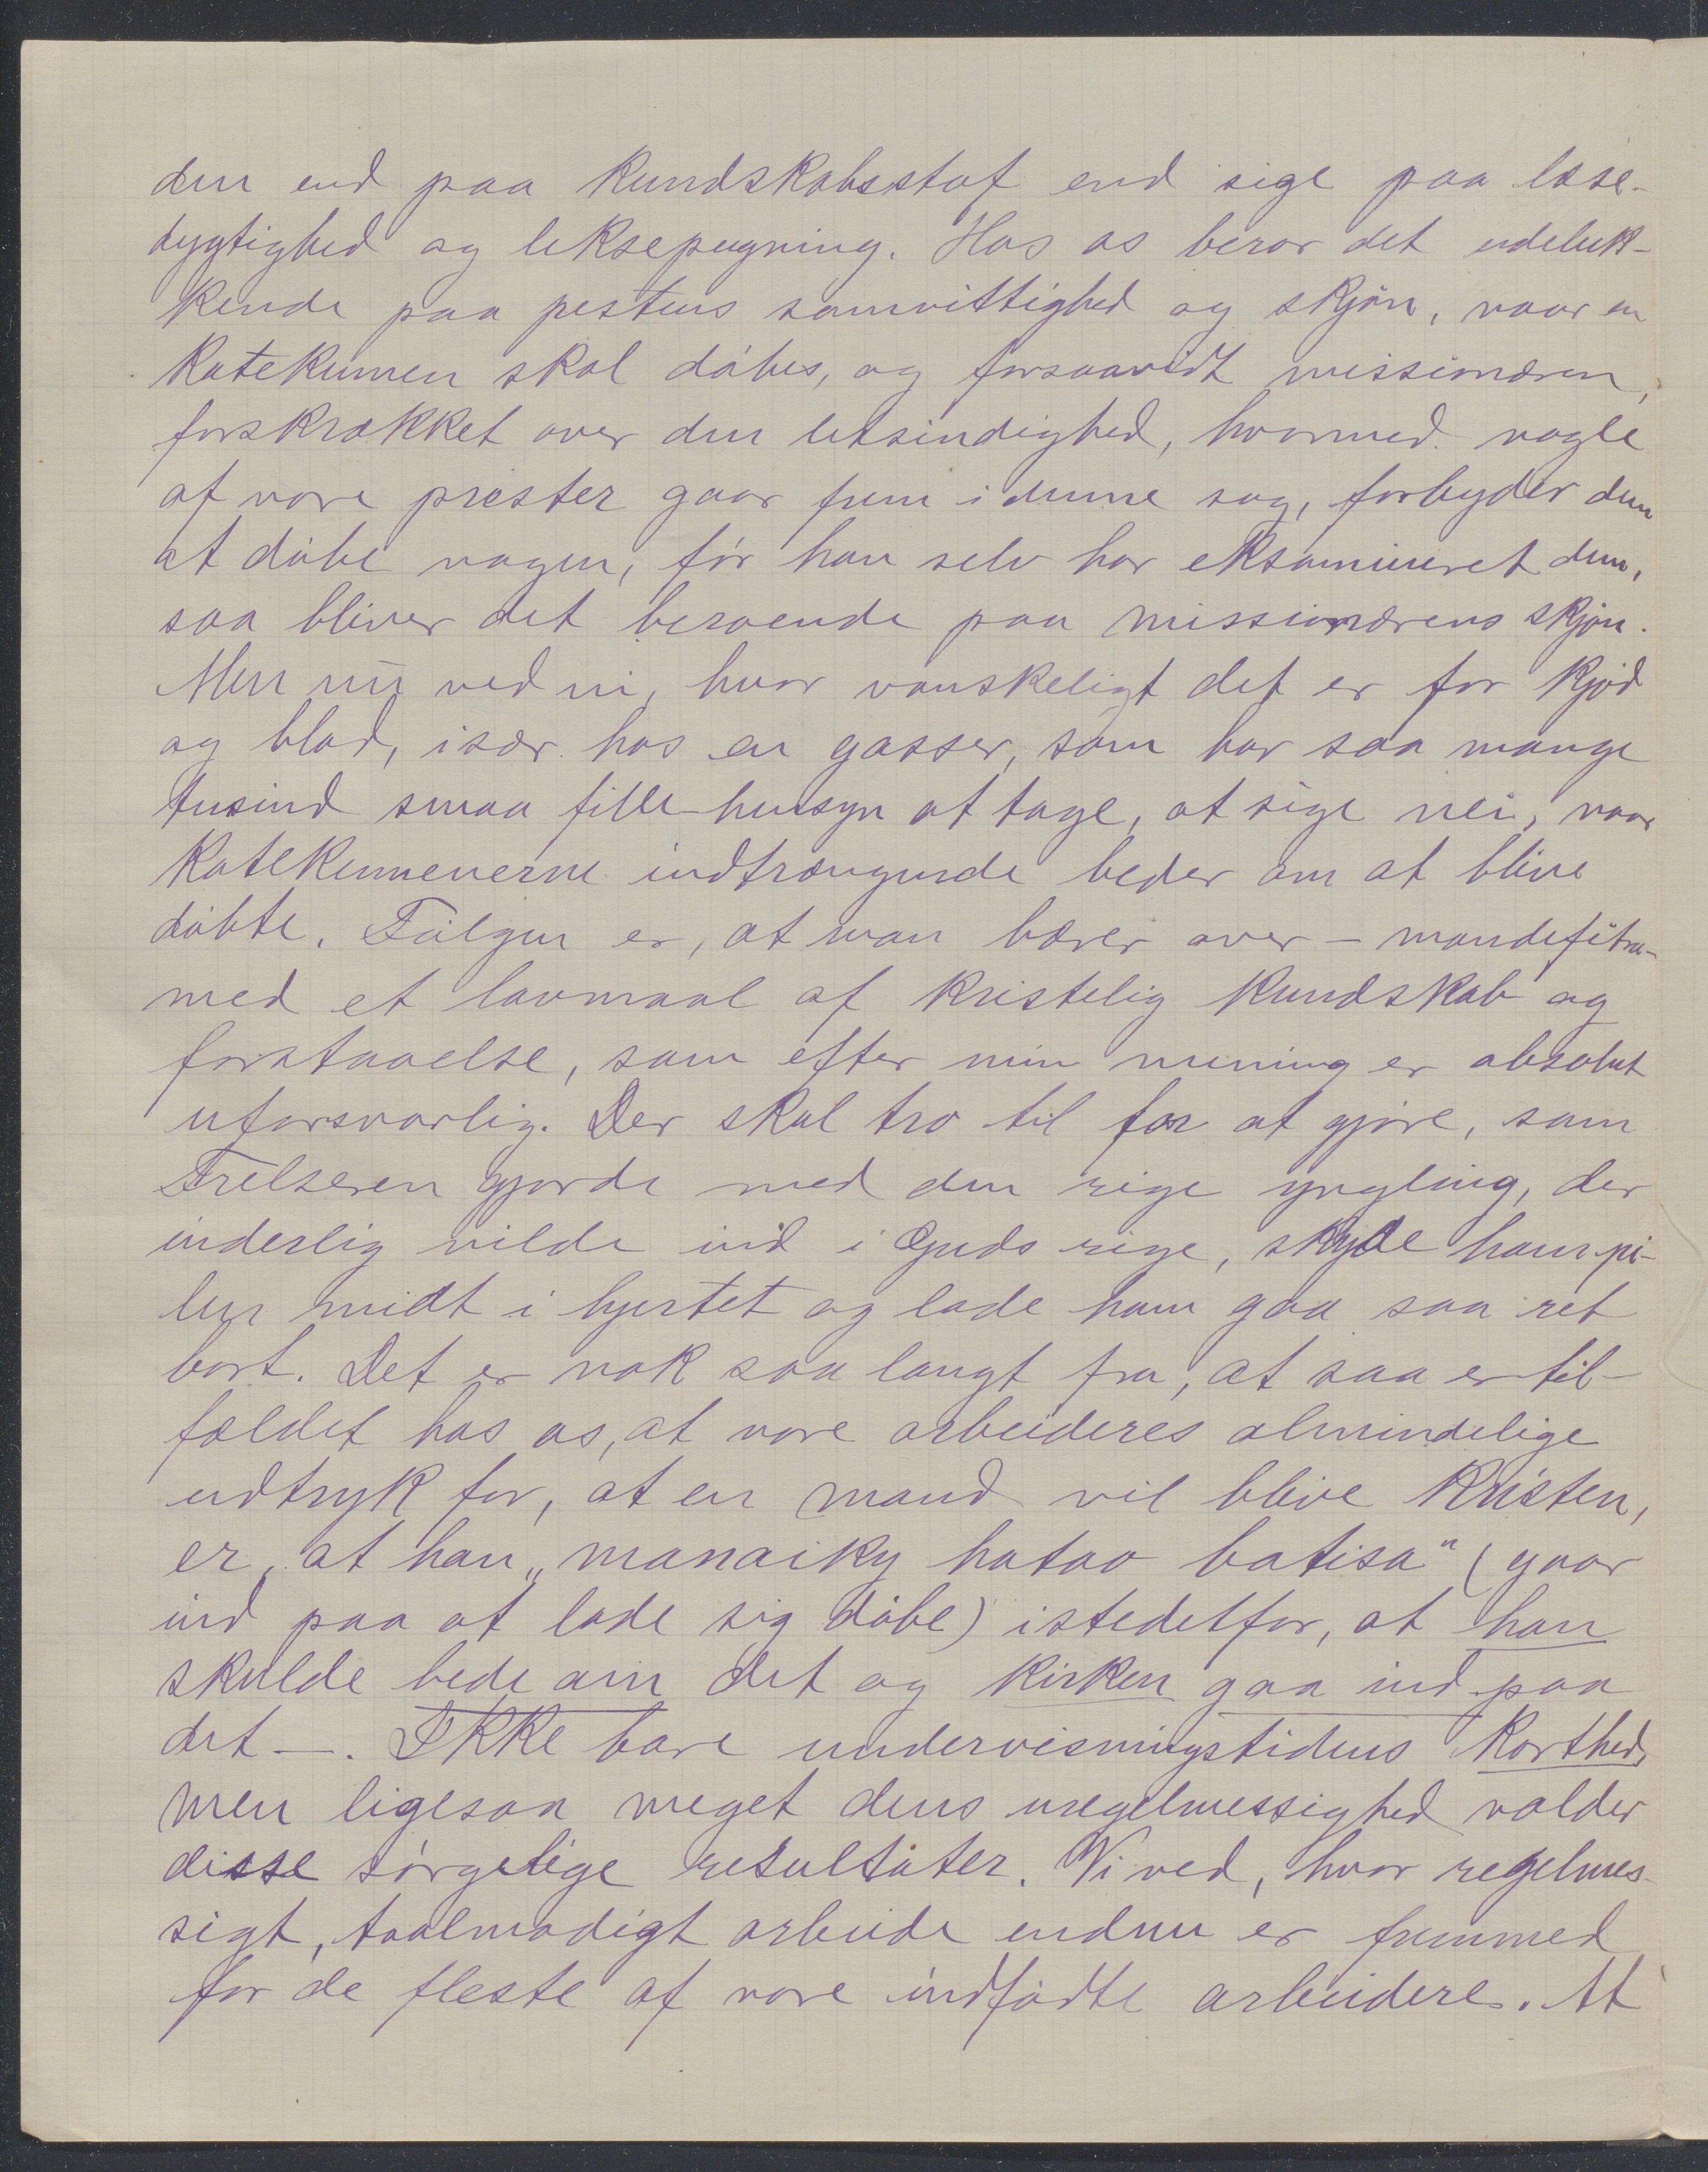 den end paa kundskabsstof end sige paa læse-
dygtighed og leksepugning. Hos os beror det udeluk-
kende paa prestens samvittighed og skjön, naar en
katekumen skal döbes, og forsaavidt missionæren,
forskrækket over den letsindighed, hvormed nogle
af vore prester gaar frem i denne sag, forbyder dem
at döbe nogen, för han selv har eksamineret dem,
saa bliver det beroende paa missionærens skjön.
Men nu ved vi, hvor vanskeligt det er for kjöd
og blod, især hos en gasser, som har saa mange
tusind smaa fille-hensyn at tage, at sige nei, naar
katekumenerne indtrængende beder om at blive
döbte. Fölgen er, at man bærer over -
med et lavmaal af kristelig kundskab og
forstaaelse, som efter min mening er absolut
uforsvarlig. Der skal tro til for at gjöre, som
Frelseren gjorde med den rige yngling, der
inderlig vilde ind i Guds rige, skyde ham pi-
len midt i hjertet og lade ham gaa saa ret
bort. Det er nok saa langt fra, at saa er til-
fældet hos os, at vore arbeideres almindelige
udtryk for, at en mand vil blive kristen,
er, at han „manaiky hatao batisa" (gaar
ind paa at lade sig döbe) istedetfor, at han
skulde bede om det og kirken gaa ind paa
det -. Ikke bare undervisningstidens korthed,
men ligesaa meget dens uregelmessighed volder
disse sörgelige resultater. Vi ved, hvor regelmes-
sigt, taalmodigt arbeide endnu er fremmed
for de fleste af vore indfödte arbeidere. At